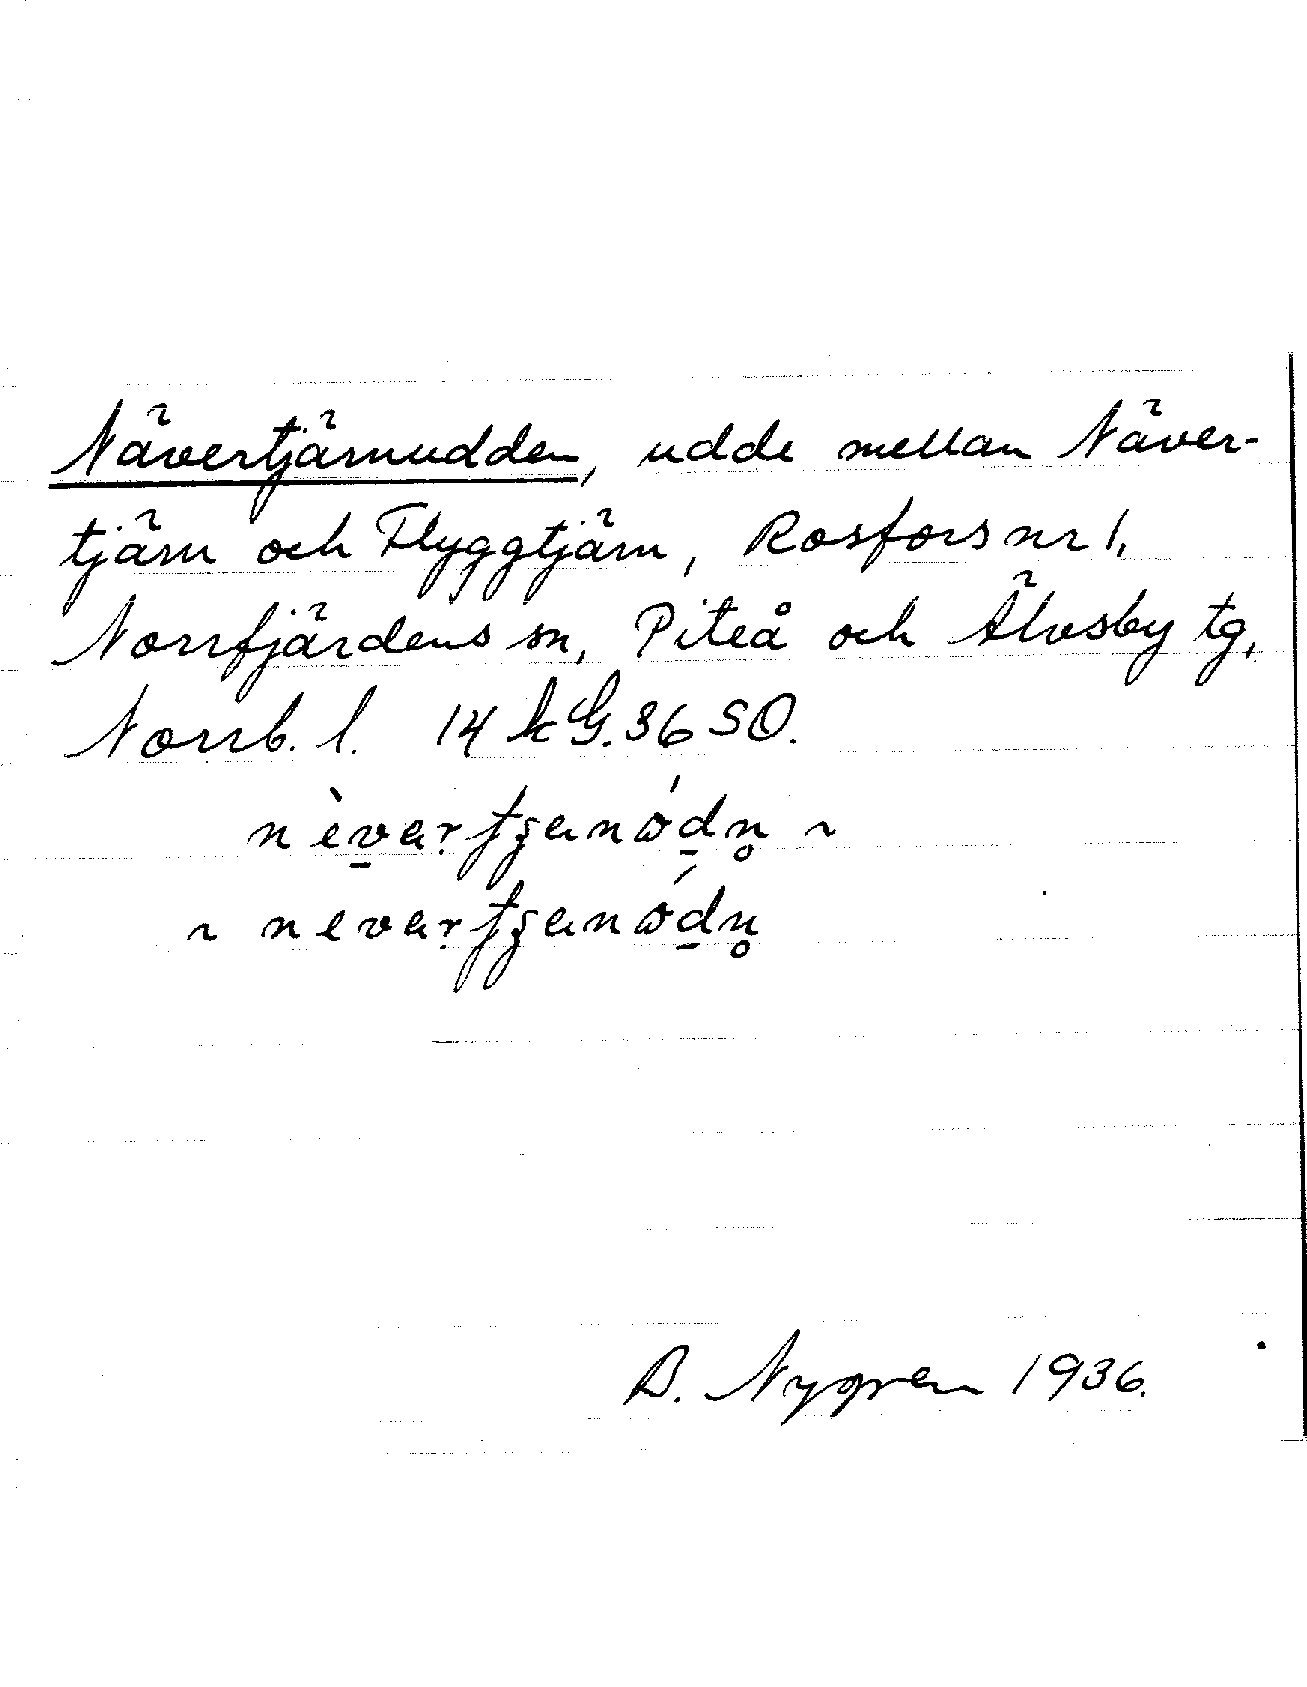 Nävertjärnudden, udde mellan Näver-
tjärn och Flyggtjärn, Rosfors nr 1,
Norrfjärdens sn, Piteå och Älvsby tg,
Norrb. l. 14 k G. 36 SO.
~
~
B. Nygren 1936.